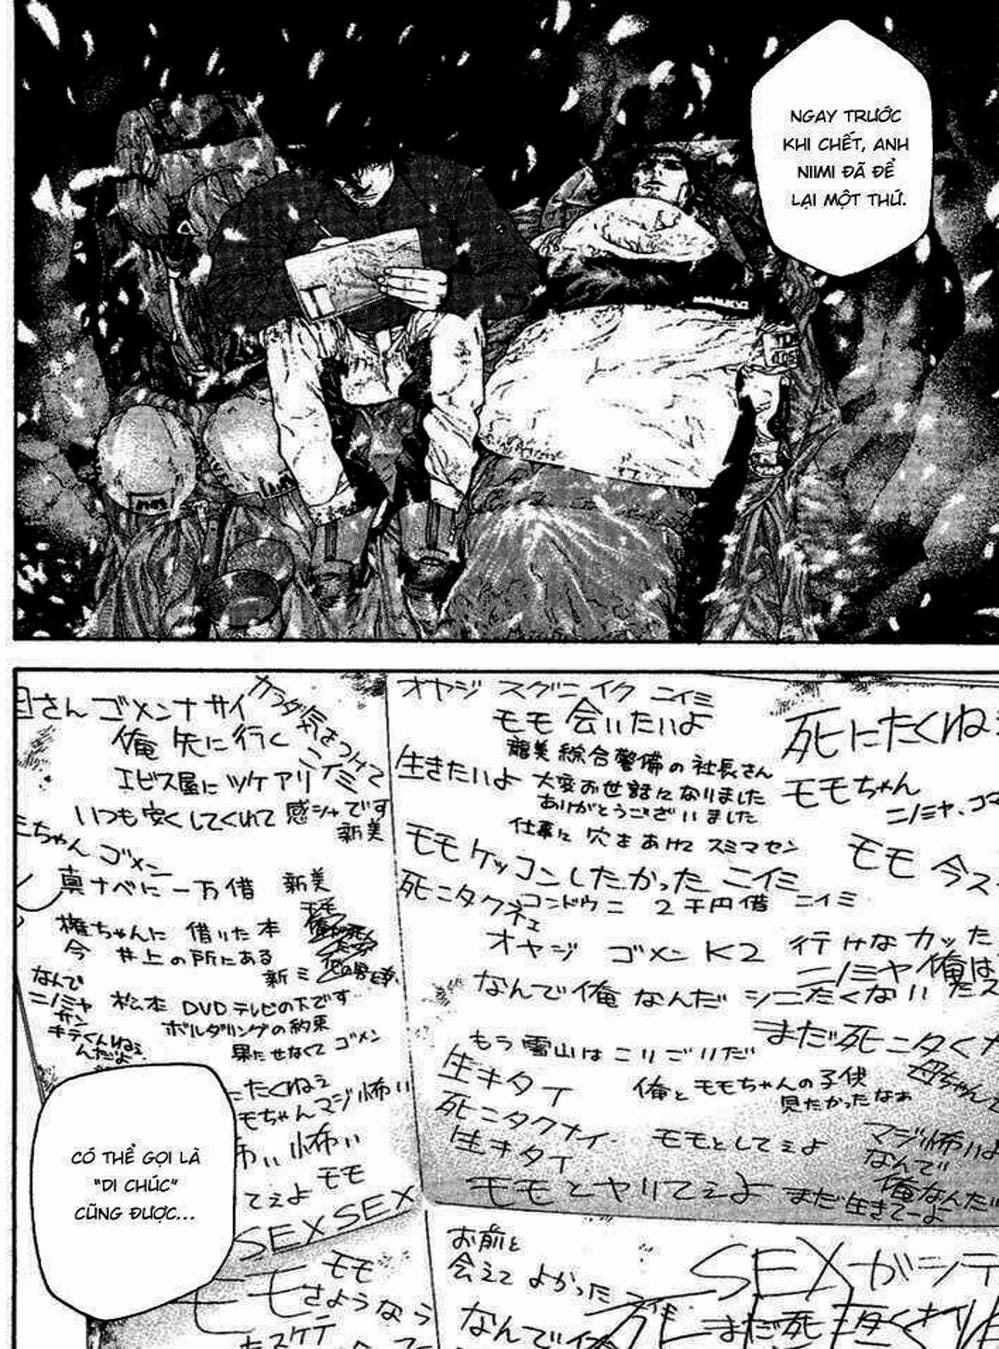 NGAY TRƯỚC
KHI CHẾT, ANH
NIIMI ĐÃ ĐỂ
LẠI MỘT THỨ.
母さん ゴメンナサイ
カラダ気をつけて
俺 先に行く ニイミ
エビス屋に ツケアリ
いつも安くしてくれて 感シャです
新美
ミちゃん ゴメン
真ナベに 一万借 新美
権ちゃんに 借りた本
今 井上の所にある
新ミ
なんで
ニノミヤ
サン
キテくんねぇ
んだよ
松本 DVDテレビの下です
ボルダリングの約束
果たせなくて ゴメン
にたくねぇ
モちゃんマジ怖い
怖い 怖い
モモ
てぇよ
SEX SEX
モモ
モモ さようなら
タスケテ
オヤジ スグニイク ニイミ
モモ 会いたいよ
生きたいよ
龍美綜合警備の社長さん
大変お世話になりました
ありがとうございました
仕事に穴をあけて スミマセン
モモ ケッコンしたかった ニイミ
死ニタクネェ
コンドウニ 2千円借 ニイミ
オヤジ ゴメン K2 行けなカッた
ニノミヤ 俺は
なんで俺なんだ シニたくないだス
まだ死ニタくな
もう雪山はこりごりだ
生キタイ
俺とモモちゃんの子供
見たかったなぁ
母ちゃん
死ニタクナイ
生キタイ
モモとしてぇよ
マジ怖いよ
なんで
俺なんだ
モモとヤリてぇよ
まだ生きてーよ
死にたくねぇ
モモちゃん
ニノミヤ.コ
モモ 今ス
お前と
会えて よかった
なんで俺
SEXがシテ
まだ死
CÓ THỂ GỌI LÀ
"DI CHÚC"
CŨNG ĐƯỢC...